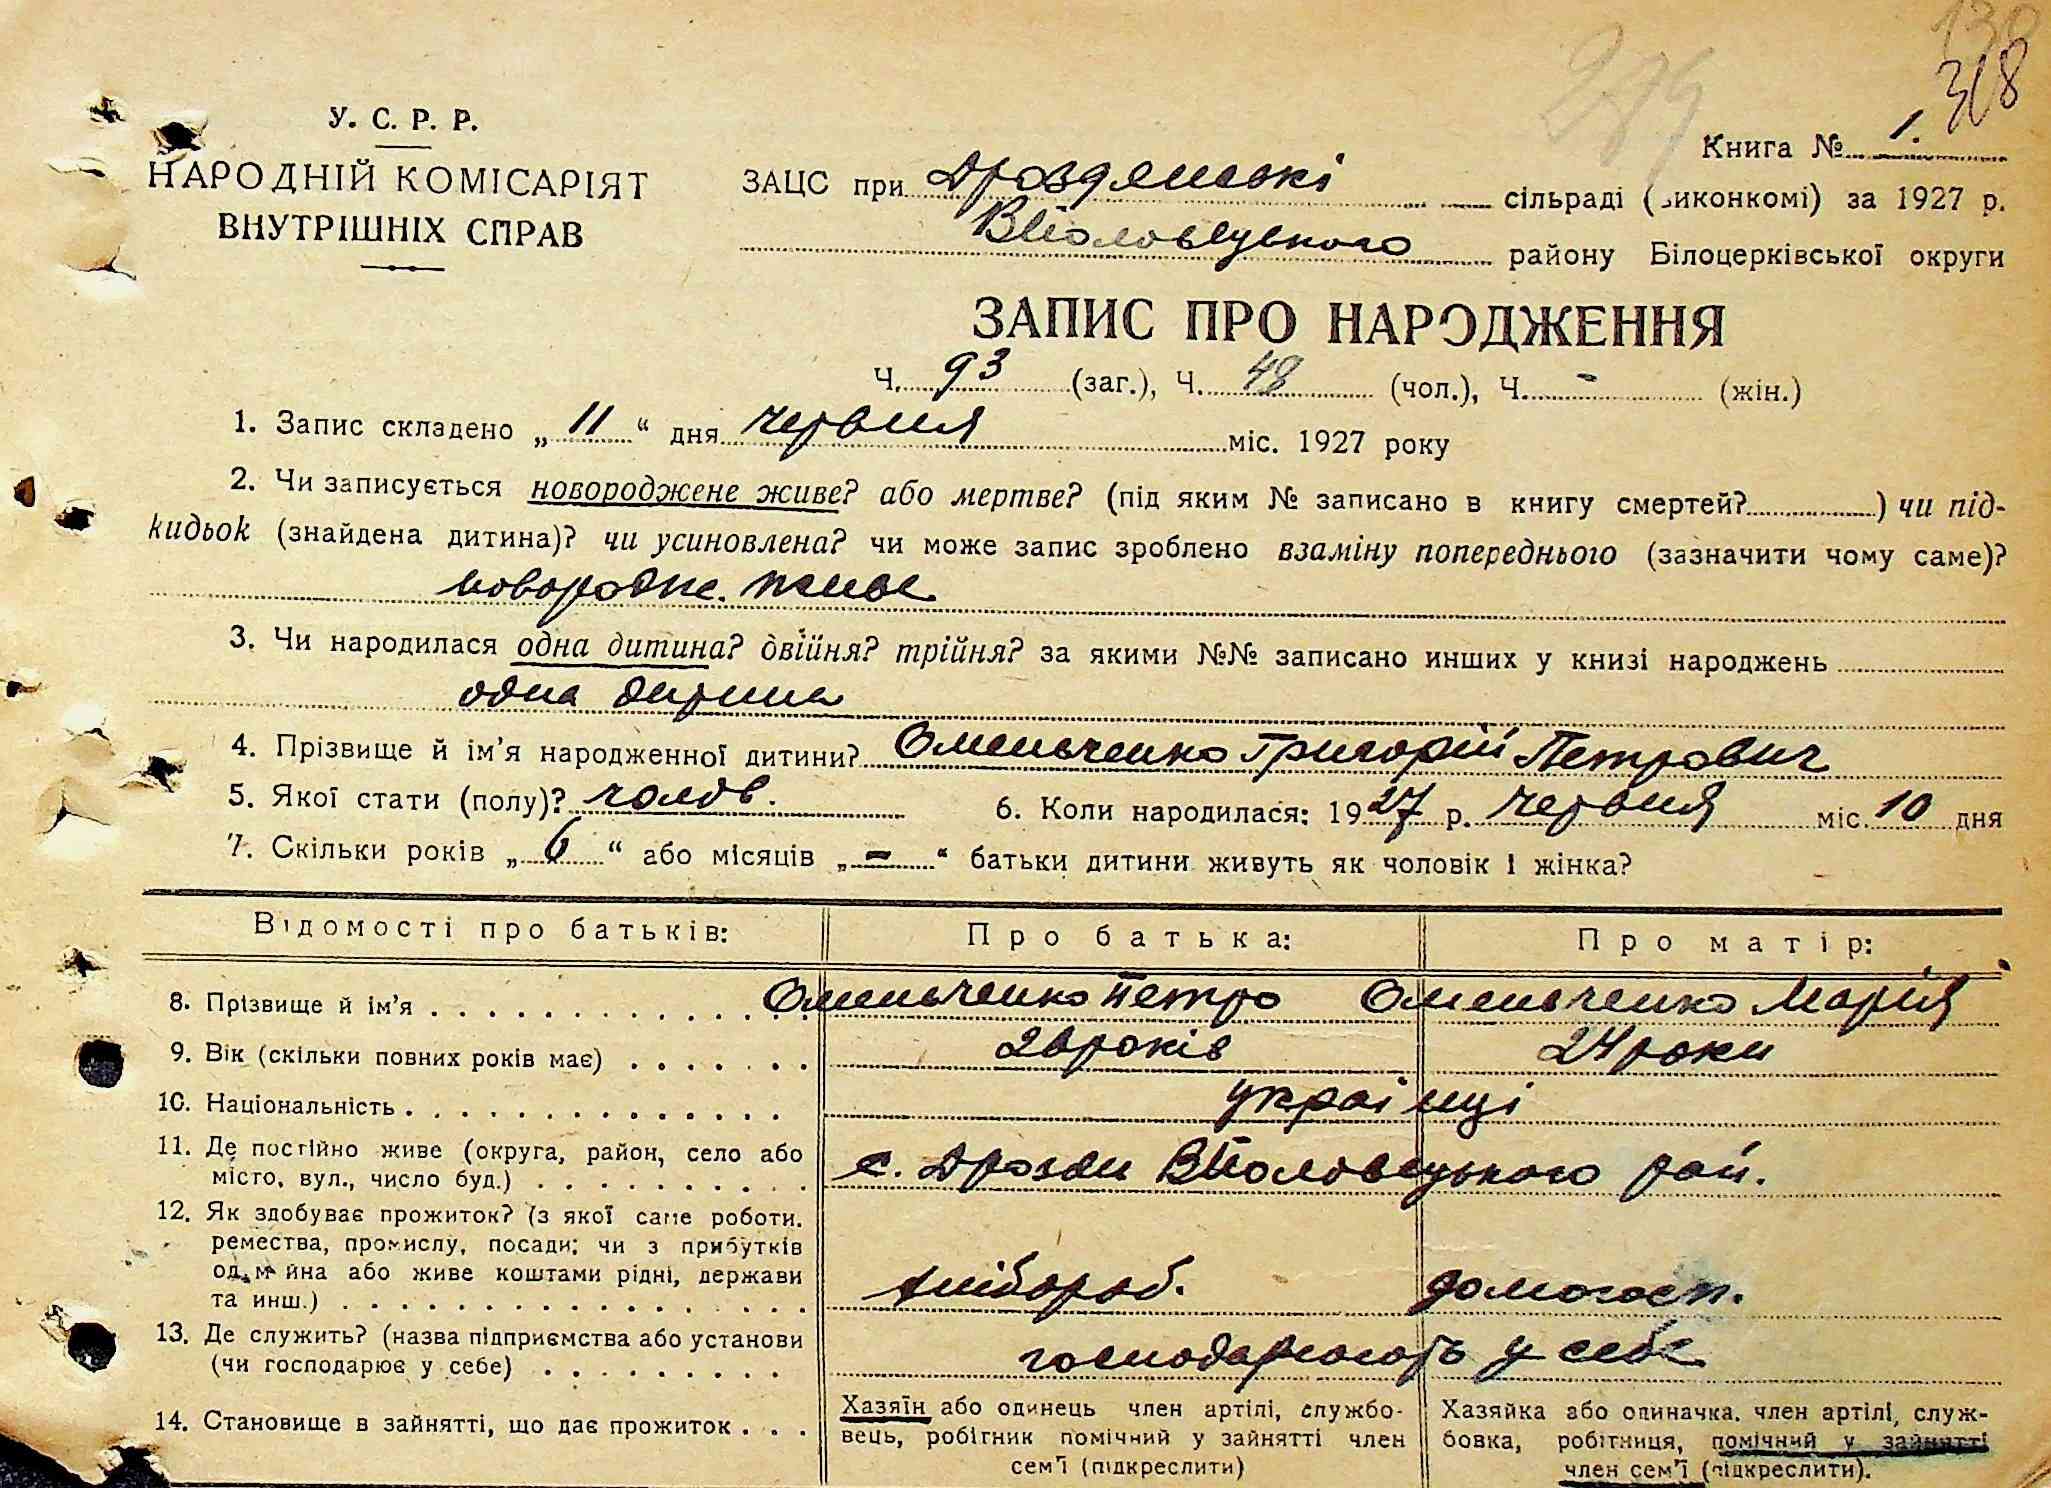 130
274
318
У. С. Р. Р.
НАРОДНІЙ КОМІСАРІЯТ
ВНУТРІШНІХ СПРАВ
Книга № 1.
ЗАЦС при Дроздянські сільраді (виконкомі) за 1927 р.
В Половецького району Білоцерківської округи
ЗАПИС ПРО НАРОДЖЕННЯ
Ч. 93 (заг.), Ч. 48 (чол.), Ч. - (жін.)
1. Запис складено „ 11 “ дня червня міс. 1927 року
2. Чи записується новороджене живе? або мертве? (під яким № записано в книгу смертей? ) чи під-
кидьок (знайдена дитина)? чи усиновлена? чи може запис зроблено взаміну попереднього (зазначити чому саме)?
новородже. живе
3. Чи народилася одна дитина? двійня? трійня? за якими №№ записано инших у книзі народжень
одна дитина
4. Прізвище й ім’я народженної дитини? Омельченко Григорій Петрович
5. Якої стати (полу)? чолов. 6. Коли народилася: 1927 р. червня міс. 10 дня
7. Скільки років „ 6 “ або місяців „ - “ батьки дитини живуть як чоловік і жінка?
Відомості про батьків: Про батька: Про матір:
8. Прізвище й ім’я Омельченко Петро Омельченко Марія
9. Вік (скільки повних років має) 26 років 24 роки
10. Національність українці
11. Де постійно живе (округа, район, село або
місто, вул., число буд.) с. Дрозди ВПоловецького рай.
12. Як здобуває прожиток? (з якої саме роботи,
ремества, промислу, посади; чи з прибутків
од майна або живе коштами рідні, держави
та инш.) хлібороб. домогосп.
13. Де служить? (назва підприємства або установи
(чи господарює у себе) господарюють у себе
14. Становище в зайнятті, що дає прожиток
Хазяїн або одинець член артілі, службо-
вець, робітник помічний у зайнятті член
сем’ї (підкреслити)
Хазяйка або одиначка, член артілі, служ-
бовка, робітниця, помічний у зайнятті
член сем’ї (підкреслити).